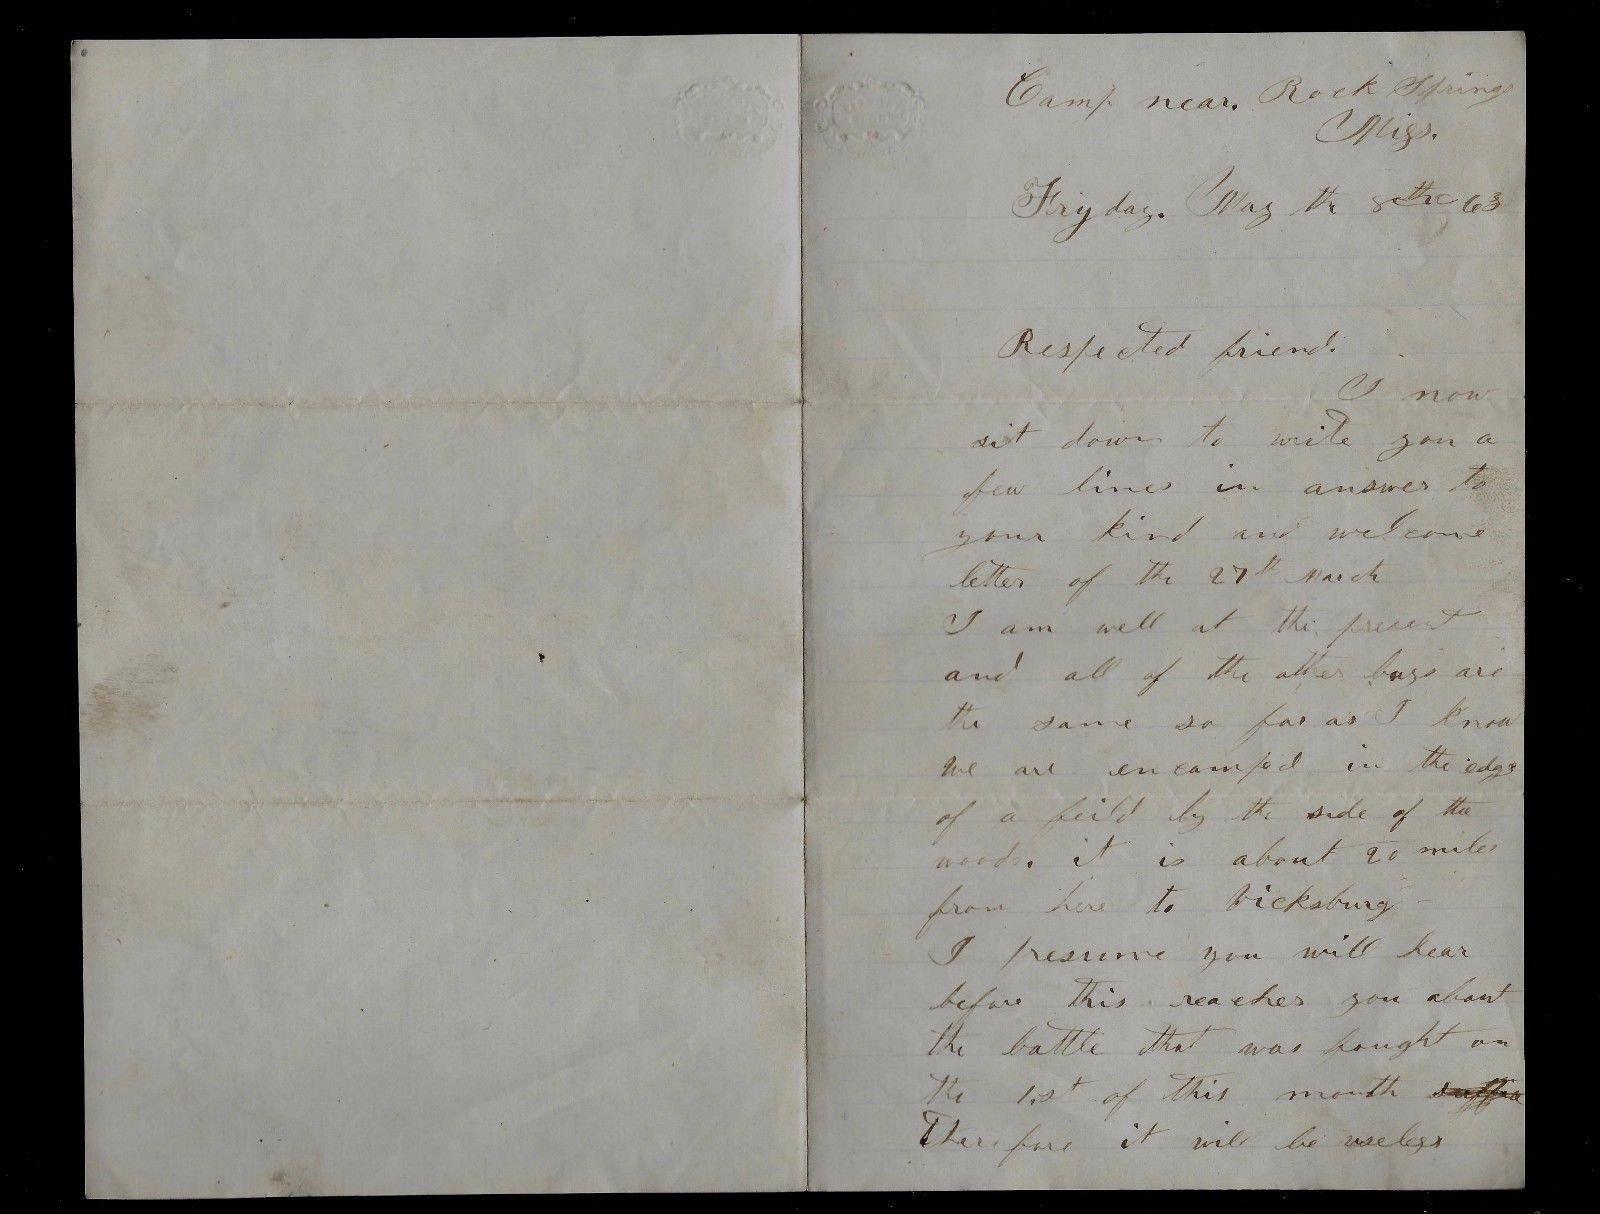 Camp near. Rock Springs
Miss.
Fryday. May th 8th 63
Respected friend.
I now
sit down to write you a
few lines in answer to
your kind and welcome
letter of the 27th March
I am well at the present
and all of the other boys are
the same so far as I know
We are encamped in the edge
of a feild by the side of the
woods. it is about 20 miles
from here to Vicksburg
I presume you will hear
before this reaches you about
the battle that was fought on
the 1st of this month
Therefore it will be useless